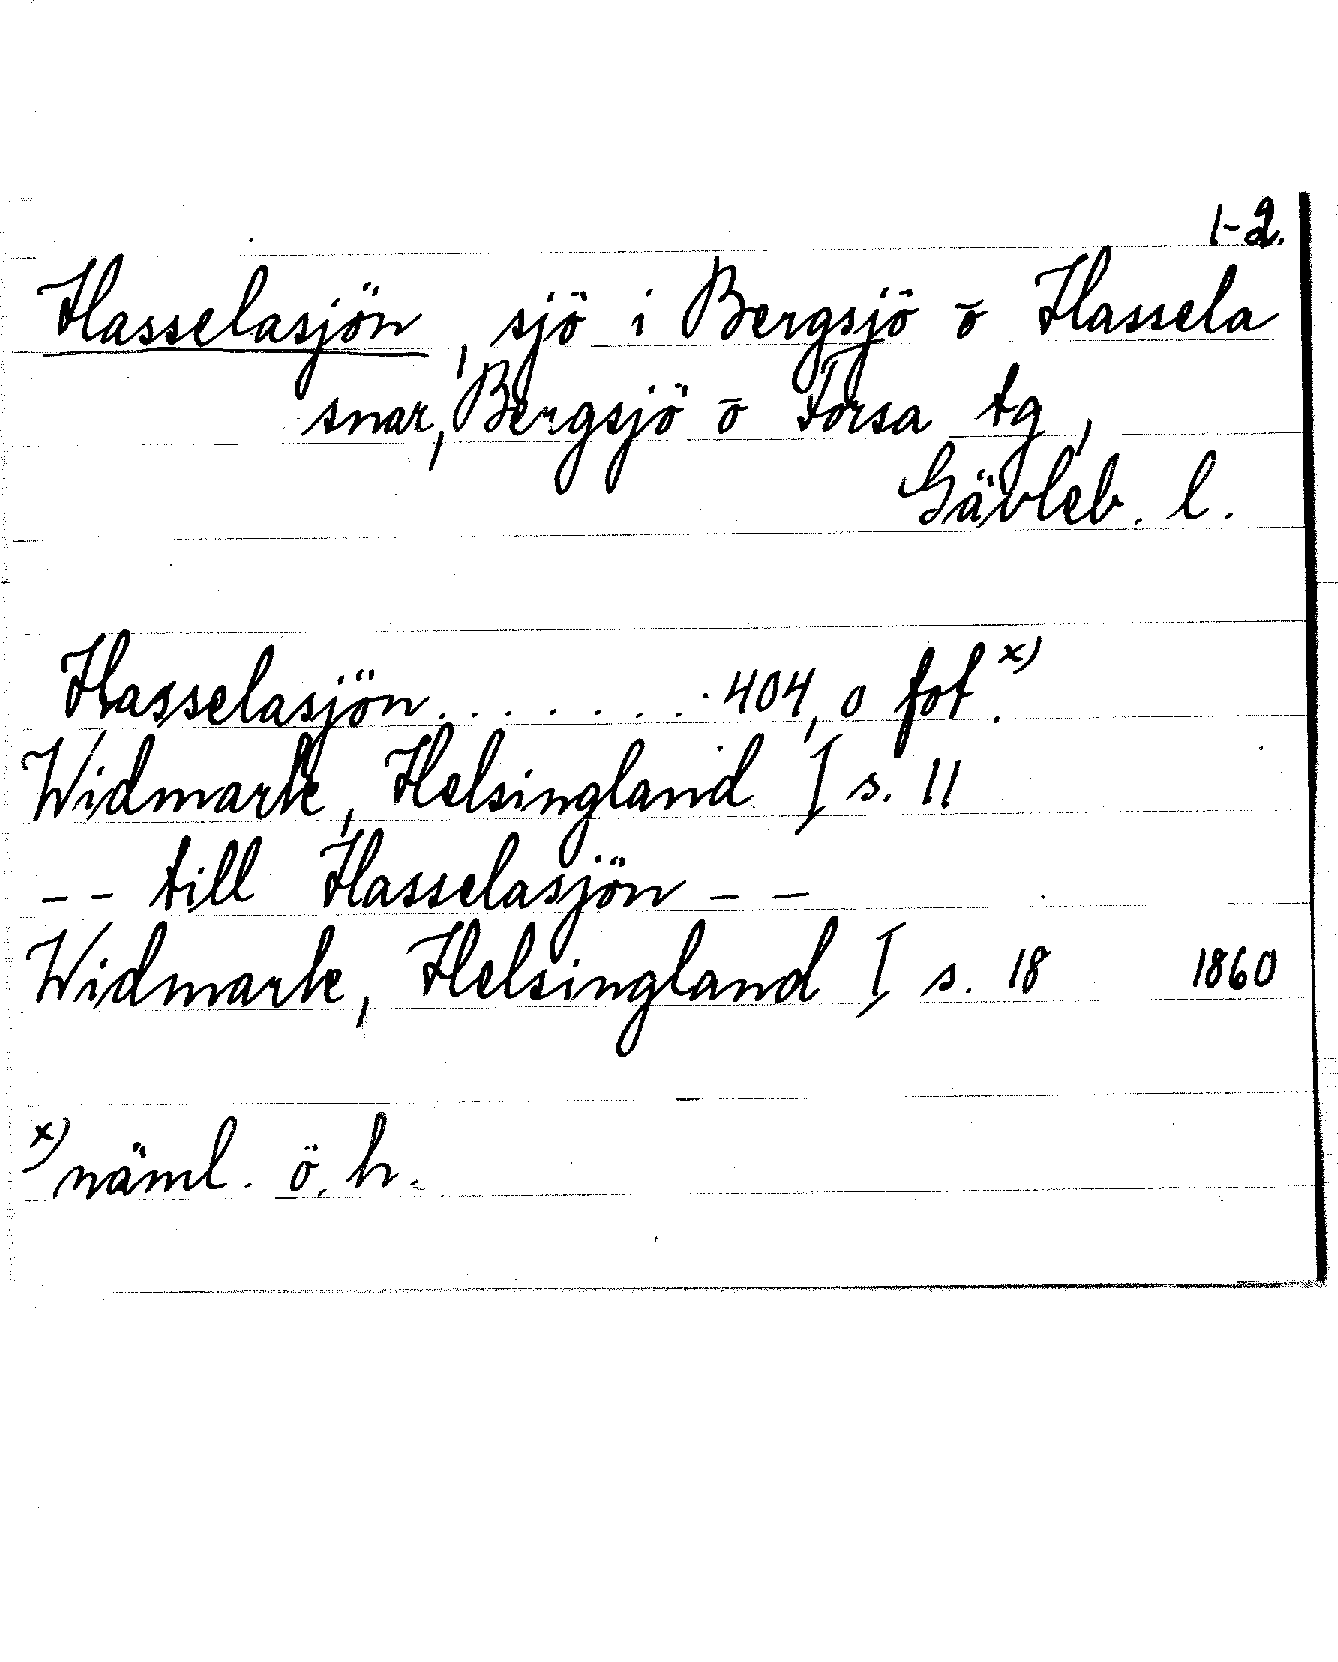 1-2.
Hasselasjön, sjö i Bergsjö o Hassela
snar, Bergsjö o Forsa tg,
Gävleb. l.
Hasselasjön . . . . . . . 404,0 fot. x)
Widmark, Helsingland I s. 11
-- till Hasselasjön --
Widmark, Helsingland I s. 18 1860
x) näml. ö. h.